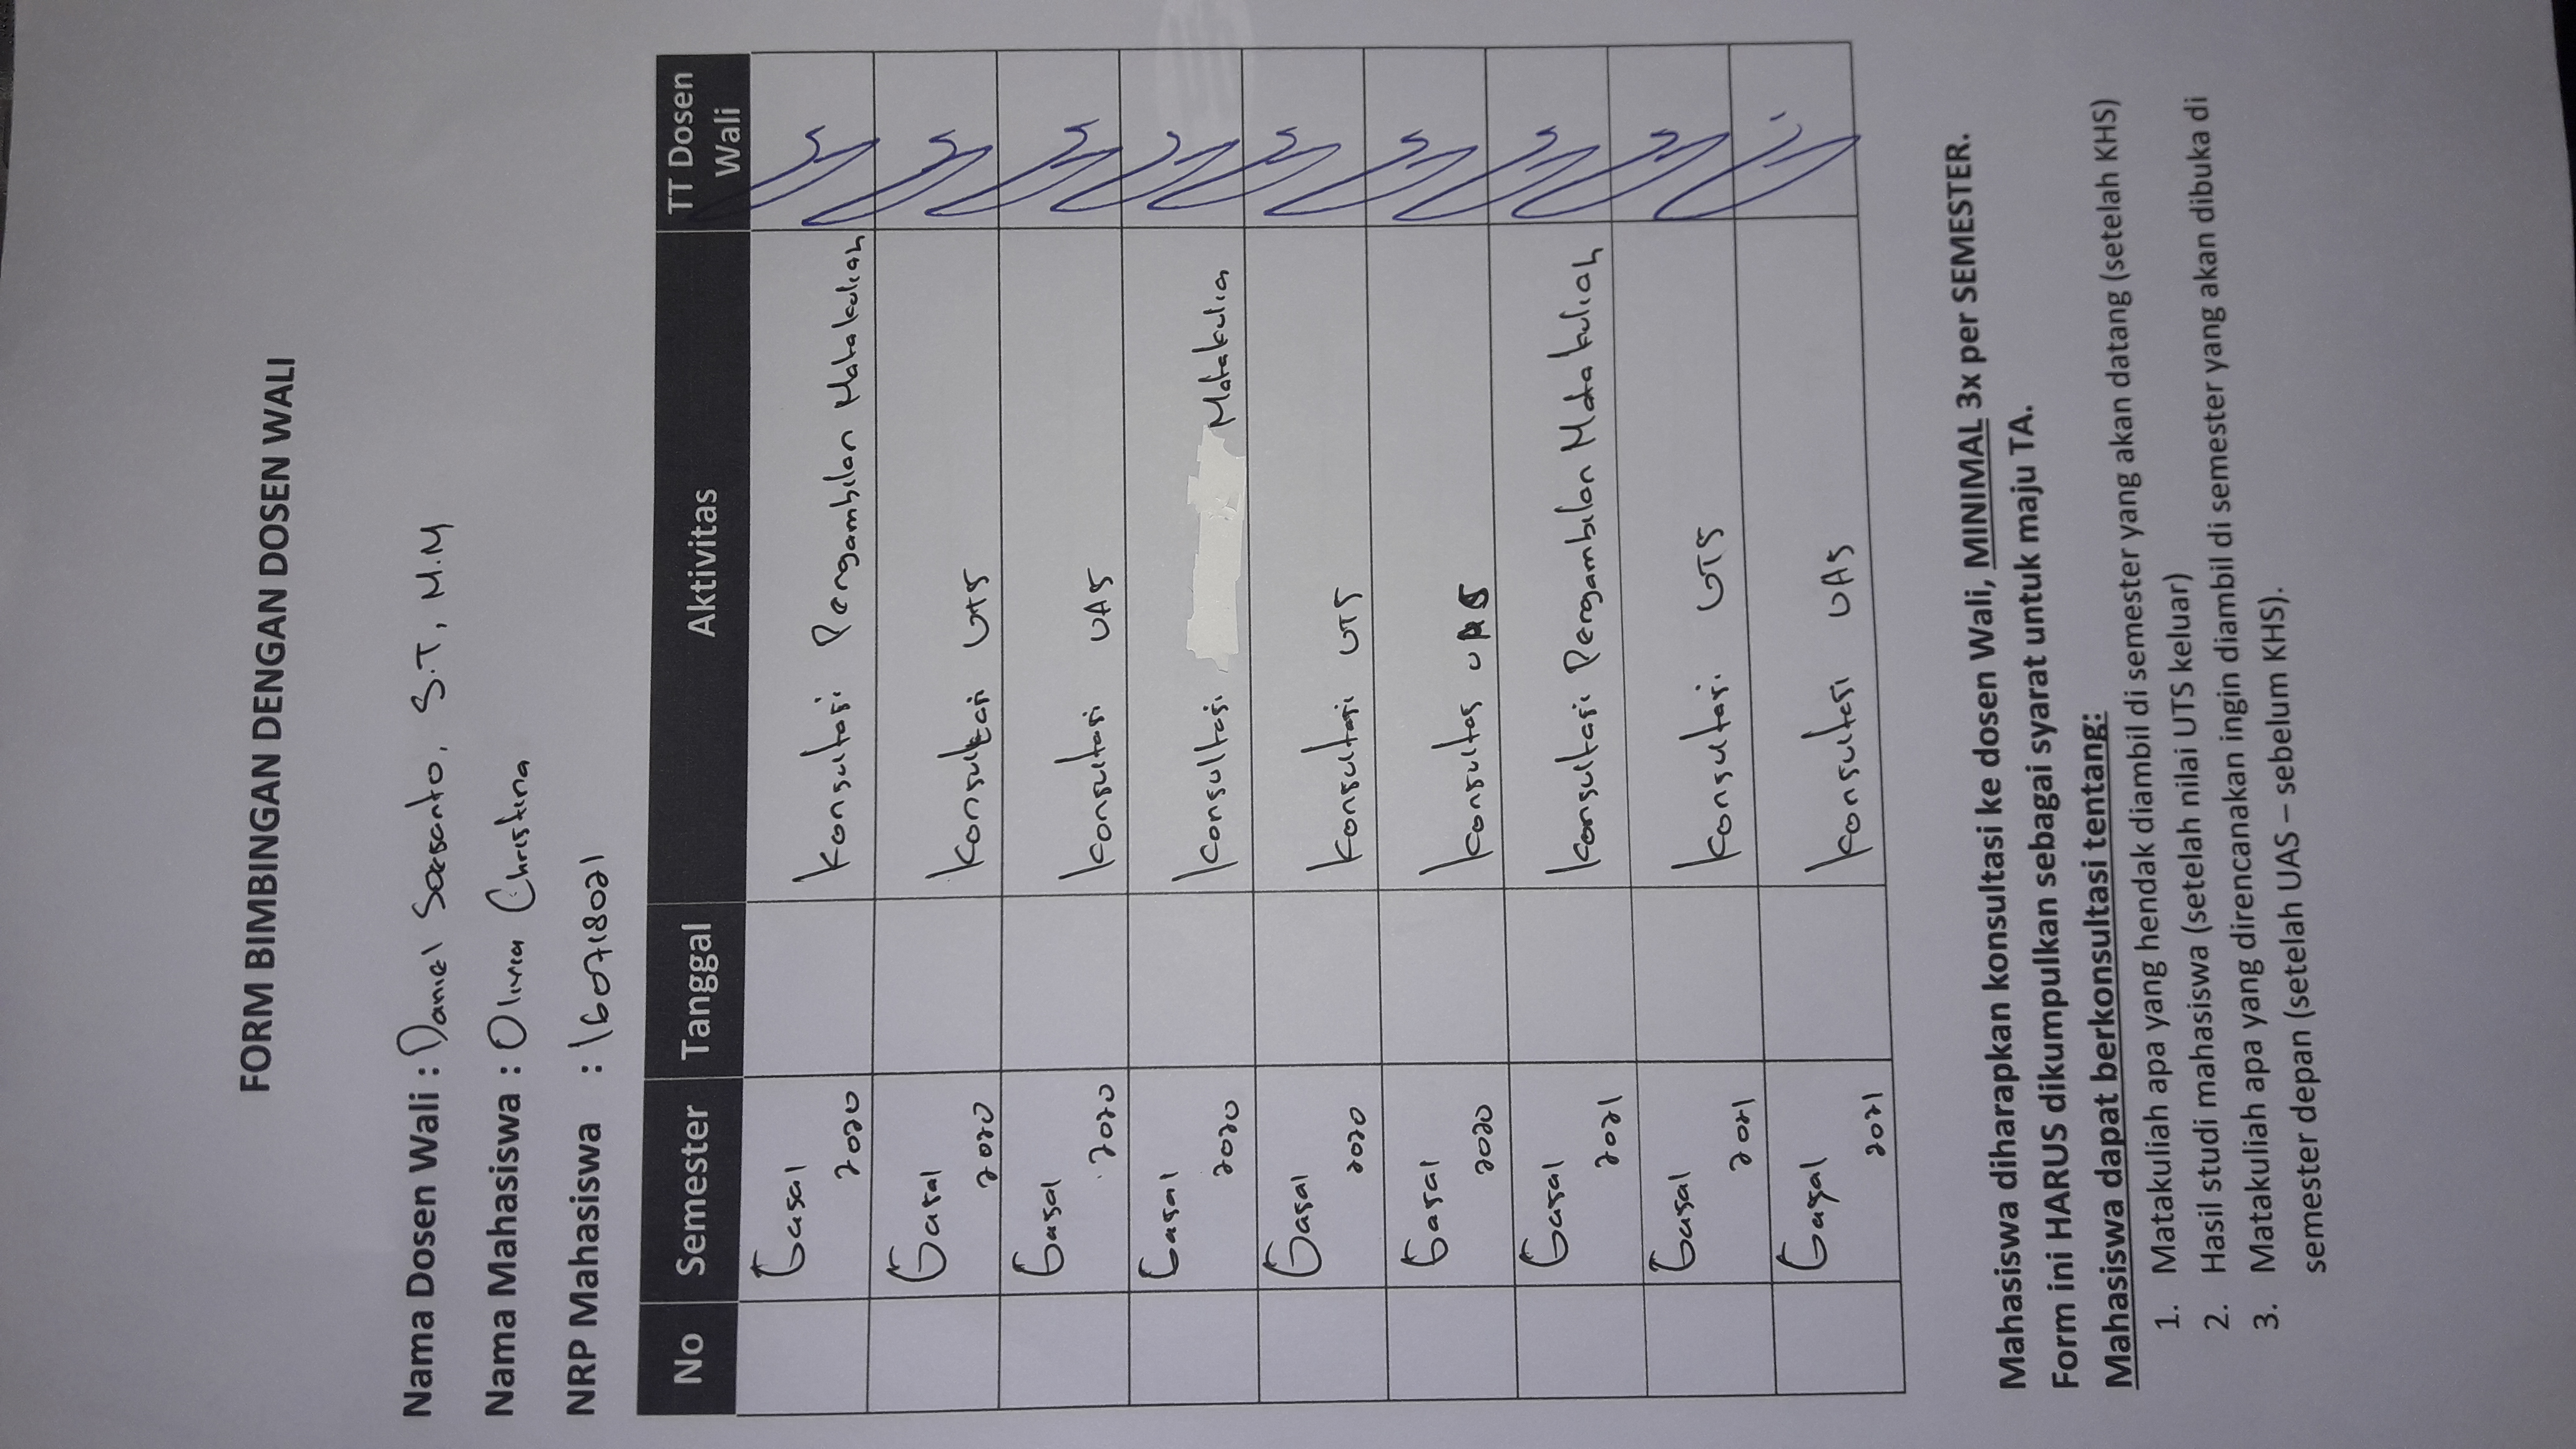 FORM BIMBINGAN DENGAN DOSEN WALI
Nama Dosen Wali : Daniel Soesanto, S.T, M.M
Nama Mahasiswa : Olivia Christina
NRP Mahasiswa : 160718021
No Semester Tanggal Aktivitas TT Dosen Wali
Gasal 2020 Konsultasi Pengambilan Matakuliah
Gasal 2020 Konsultasi UTS
Gasal 2020 Konsultasi UAS
Gasal 2020 Konsultasi Matakulia
Gasal 2020 Konsultasi UTS
Gasal 2020 Konsultas UAS
Gasal 2021 Konsultasi Pengambilan Matakuliah
Gasal 2021 Konsultasi UTS
Gasal 2021 Konsultasi UAS
Mahasiswa diharapkan konsultasi ke dosen Wali, MINIMAL 3x per SEMESTER.
Form ini HARUS dikumpulkan sebagai syarat untuk maju TA.
Mahasiswa dapat berkonsultasi tentang:
1. Matakuliah apa yang hendak diambil di semester yang akan datang (setelah KHS)
2. Hasil studi mahasiswa (setelah nilai UTS keluar)
3. Matakuliah apa yang direncanakan ingin diambil di semester yang akan dibuka di
semester depan (setelah UAS – sebelum KHS).